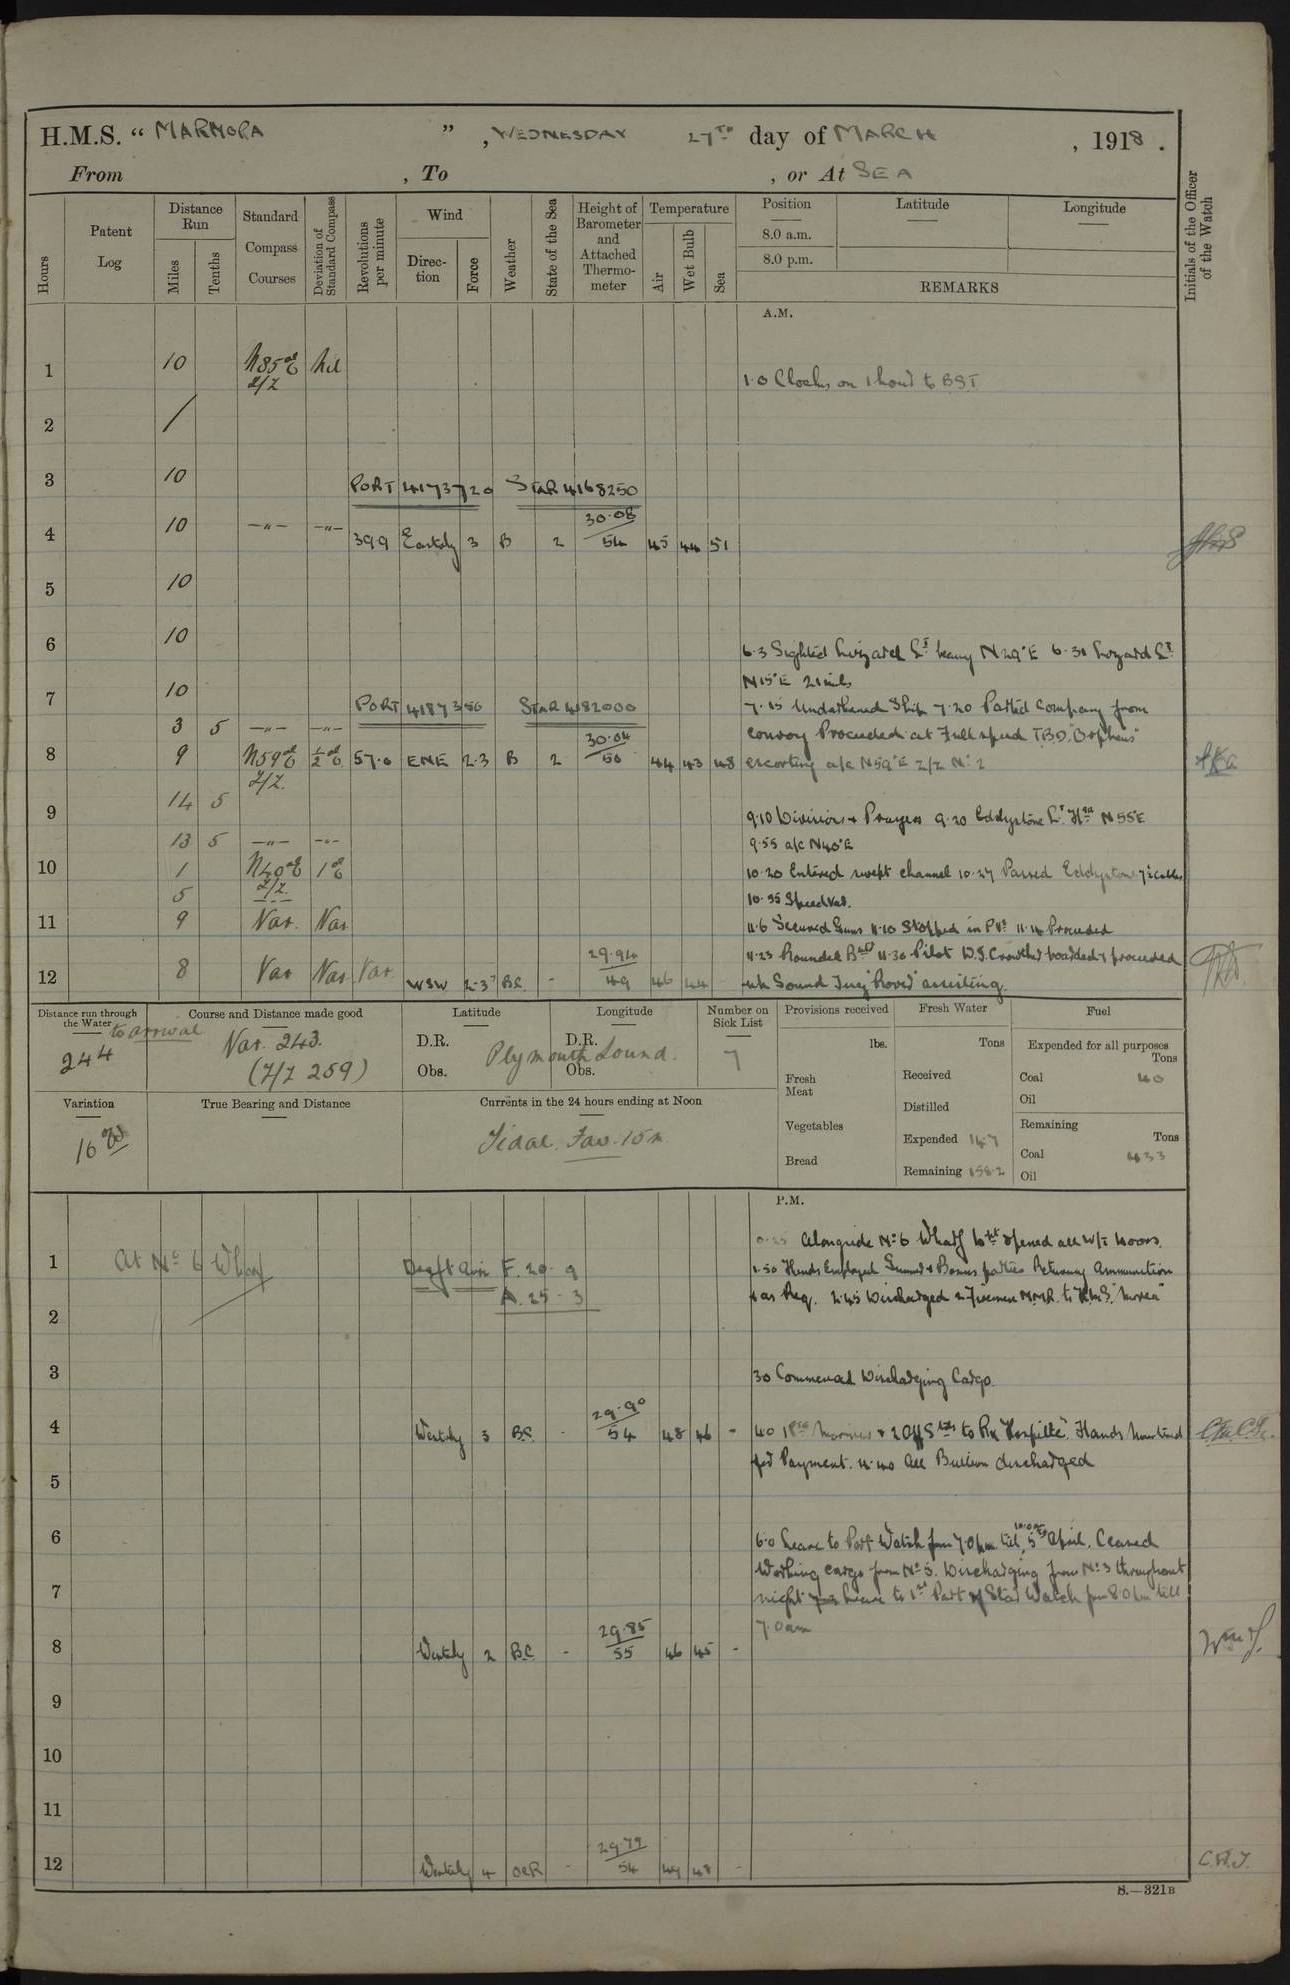 H.M.S. “ MARMORA ” , WEDNESDAY 27TH day of MARCH , 1918 .
From , To , or At SEA
Hours
Patent Log
Distance Run
Miles
Tenths
Standard Compass Courses
Deviation of Standard Compass
Revolutions per minute
Wind
Direction
Force
Weather
State of the Sea
Height of Barometer and Attached Thermometer
Temperature
Air
Wet Bulb
Sea
Position
Latitude
Longitude
8.0 a.m.
8.0 p.m.
REMARKS
Initials of the Officer of the Watch
A.M.
1 10 N85°E Z/Z Nil
1.0 Clocks on 1 hour to BST
2 /
3 10
PORT 4173720 STAR 4168250
4 10 —"— —"— 39.9 Easterly 3 B 2 30.08 54 45 44 51
5 10
6 10
6.3 Sighted Lizard Lt bearing N29°E 6.30 Lizard Lt
N15°E 21 miles
7 10
PORT 4187350 STAR 4182000
7.15 Undarkened Ship 7.20 Parted Company from
3 5 —"— —"—
convoy Proceeded at Full speed T.B.D. "Orpheus"
8 9 N59°E Z/Z ½°E 57.6 ENE 2.3 B 2 30.04 56 44 43 48
escorting a/c N59°E Z/Z No 2
9 14 5
9.10 Divisions & Prayers 9.20 Eddystone Lt Hse N55E
13 5 —"— —"—
9.55 a/c N40°E
10 1 N40°E Z/Z 1°E
10.20 Entered swept channel 10.27 Passed Eddystone 7½ cables
5
10.35 Speed Var.
11 9 Var. Var
11.6 Secured Guns 11.10 Stopped in Posn 11.14 Proceeded
11.23 Rounded Bwater 11.30 Pilot W.S. Crowther boarded & proceeded
12 8 Var Var Var WSW 2-3 BC. - 29.94 49 46 44
up Sound Tug "Rover" assisting.
Distance run through the Water
to arrival
244
Course and Distance made good
Var. 243.
(Z/Z 259)
Latitude
D.R.
Obs.
Longitude
D.R.
Obs.
Plymouth Sound.
Number on Sick List
7
Provisions received
lbs.
Fresh Meat
Vegetables
Bread
Fresh Water
Tons
Received
Distilled
Expended 147
Remaining 1582
Fuel
Expended for all purposes
Tons
Coal 40
Oil
Remaining
Tons
Coal 433
Oil
Variation
16°W
True Bearing and Distance
Currents in the 24 hours ending at Noon
Tidal. Fav. 15m
P.M.
Alongside No 6 Wharf opened all W/T Doors.
1 At No 6 Wharf
Draft F. 20. 9
1.50 Hands Employed
parties Returning Ammunition
A. 25. 3
as Req. 2.45 Discharged 2 Firemen M.M.R. to H.M.S. "Morea"
2
3
30 Commenced Discharging Cargo.
4 Westerly 3 BC. - 29.90 54 48 46 -
40 1 Pte Marines & 2 to RN Hospital. Hands mustered
for Payment. 4.40 All Bullion discharged
5
6
6.0 Leave to Port Watch from 7.0pm till 5th April. Ceased
Working cargo from No 5. Discharging from No 3 throughout
7
night Leave to 1st Part of Star Watch from 8.0pm till
7.0am
8 Westerly 2 BC. - 29.85 55 46 45 -
9
10
11
12 Westerly 4 OCR - 29.79 54 49 48 -
C.R.J.
S.—321B